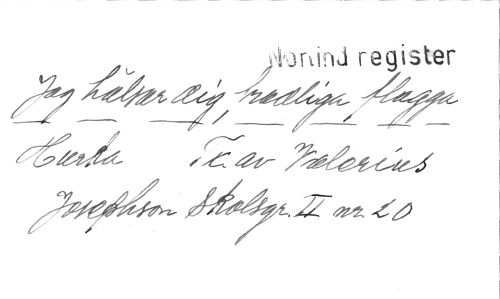 Norlind register
Jag hälsar dig, fredliga flagga
Hurra T. av Valerius
Josephson Skolsgr. II nr. 20